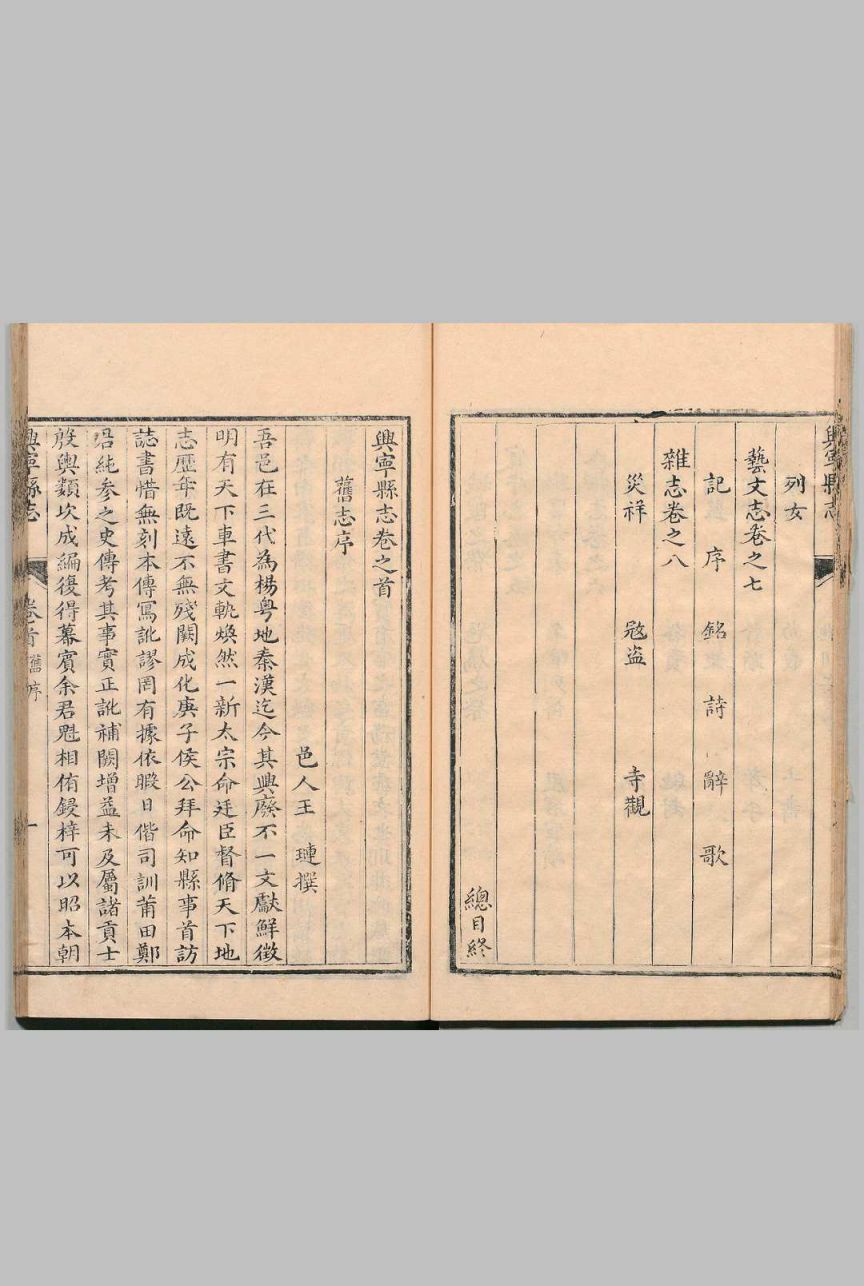 興寧縣志
列女
藝文志卷之七
記 序 銘 詩 辭 歌
雜志卷之八
災祥 宼盜 寺觀
總目終
興寧縣志卷之首
舊志序
邑人王 璉撰
吾邑在三代為楊粵地秦漢迄今其興廢不一文獻鮮徵
明有天下車書文軌煥然一新太宗命廷臣督脩天下地
志歷年既遠不無殘闕成化庚子侯公拜命知縣事首訪
誌書惜無刻本傳寫訛謬罔有據依暇日偕司訓莆田鄭
君純参之史傳考其事實正訛補闕增益未及屬諸貢士
殷輿類次成編復得幕賓余君魁相侑鋟梓可以昭本朝
興寧縣志 卷首 舊序 一